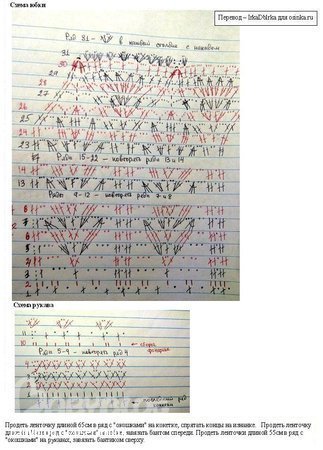 Схема юбки
Перевод – IrkaDblrka для osinka.ru
Ряд 31 - в каждый столбик с накидом
31
30
29
28
27
26
25
24
23
Ряды 15-22 – повторять ряды 13 и 14
14
13
Ряды 9-12 – повторять ряды 7 и 8
8
7
6
5
4
3
2
1
Схема рукава
11
10
Ряды 5-9 – повторять ряд 4
4
3
2
1
Продеть ленточку длиной 65см в ряд с "окошками" на кокетке, спрятать концы на изнанке. Продеть ленточку
завязать бантом спереди. Продеть ленточки длиной 55см в ряд с
"окошками" на рукавах, завязать бантиком сверху.